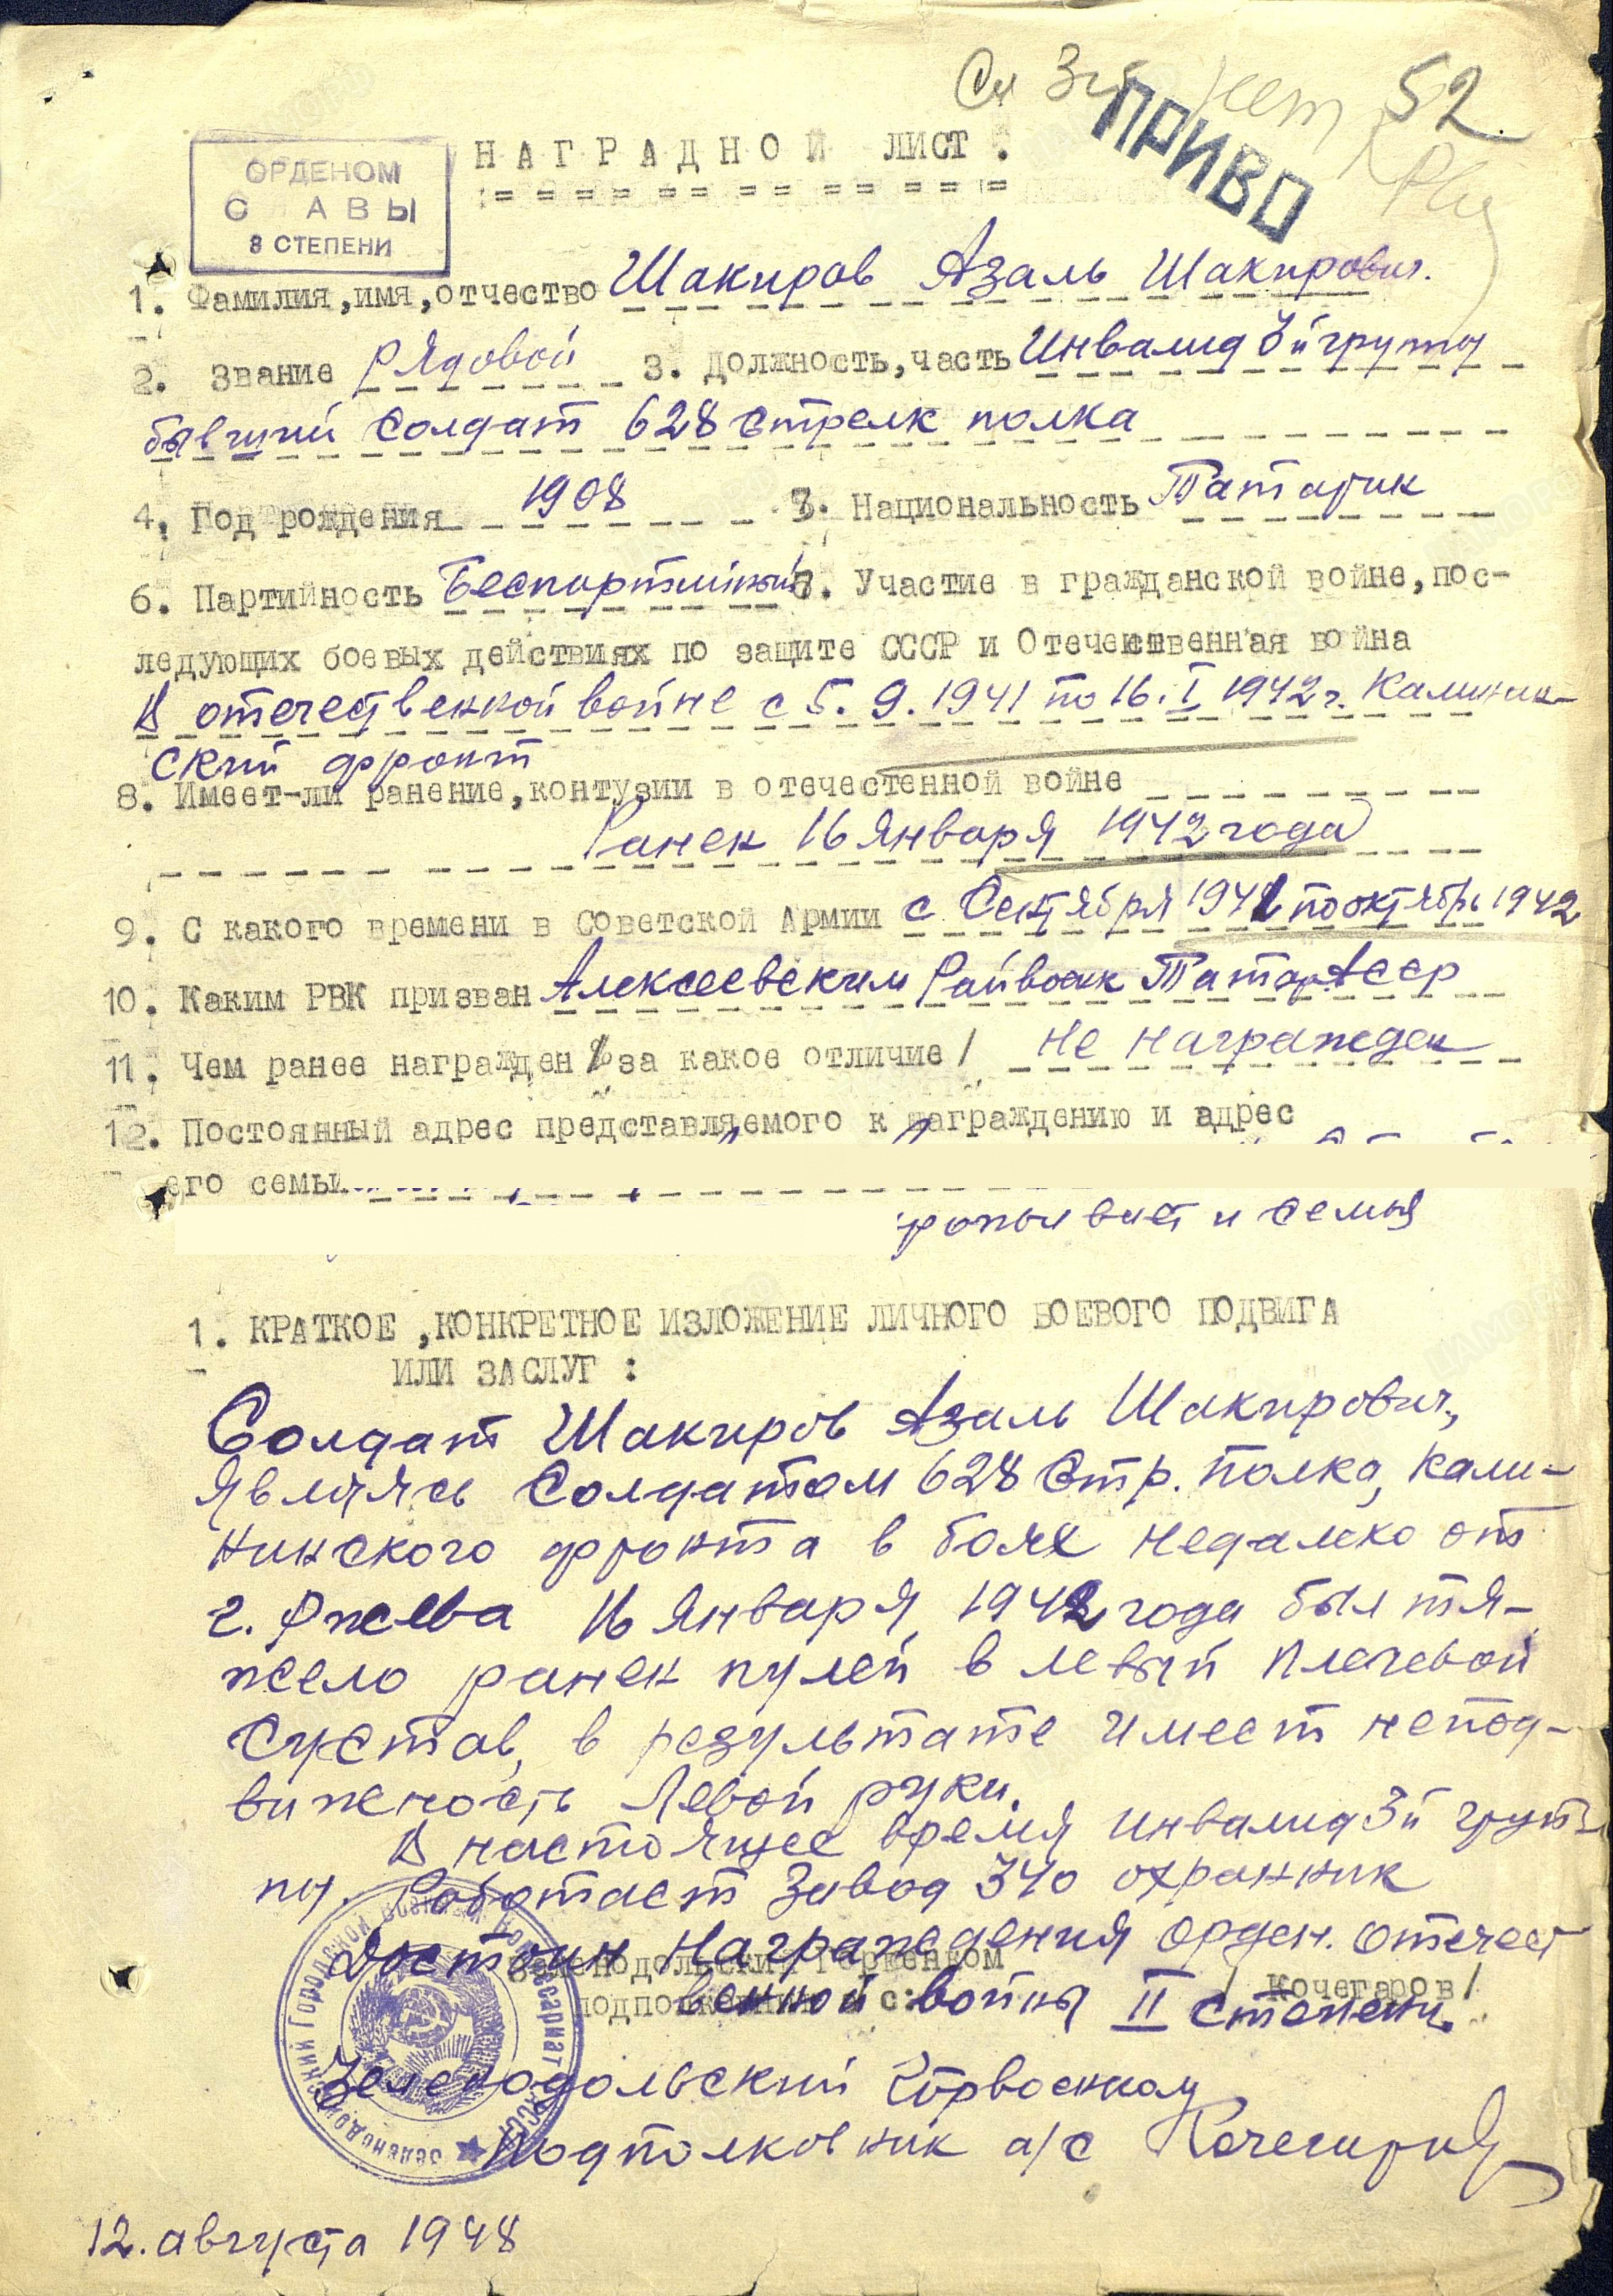 52.
ПРИВО
ОРДЕНОМ
С АВЫ
3 СТЕПЕНИ
НАГРАДНОЙ ЛИСТ.
1. Фамилия,имя,отчество Шакиров Азаль Шакирович.
2. Звание Рядовой 3. Должность,часть Инвалид 3й группы
бывший солдат 628 Стрелк полка
4. Год рождения 1908 7. Национальность Татарин
6. Партийность Беспартийный 7. Участие в гражданской войне,пос-
ледующих боевых действиях по защите СССР и Отечественная война
В отечественной войне с 5.9.1941 по 16.I 1942 г. Калинин-
ский фронт
8. Имеет-ли ранение,контузии в отечестенной войне
Ранен 16 января 1942 года
9. С какого времени в Советской Армии с Сентября 1941 по октябрь 1942
10. Каким РВК призван Алексеевским Райвоенк Татар АССР
11. Чем ранее награжден / за какое отличие/ Не награжден
12. Постоянный адрес представляемого к награждению и адрес
его семьи
проживает и семья
1. КРАТКОЕ ,КОНКРЕТНОЕ ИЗЛОЖЕНИЕ ЛИЧНОГО БОЕВОГО ПОДВИГА
ИЛИ ЗАСЛУГ :
Солдат Шакиров Азаль Шакирович,
являясь Солдатом 628 Стр. полка, Кали-
нинского фронта в боях недалеко от
г. Ржева 16 января 1942 года был тя-
жело ранен пулей в левый плечевой
сустав, в результате имеет непод-
вижность левой руки.
В настоящее время инвалид 3й груп-
пы. Работает Завод 340 охранник
Достоин Награждения орден. Отечест
венной войны II степени.
Зеленодольский Горвенком
подполковник а/с: / Кочегаров/
Зеленодольский Горвоенком
Подполковник а/с Кочегаров
12. августа 1948